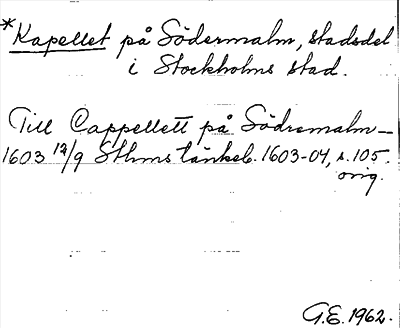 *Kapellet på Södermalm, stadsdel
i Stockholms stad.
Till Cappellett på Södremalm_
1603 12/9 Sthms tänkeb. 1603-04, s. 105.
orig.
G.E. 1962.